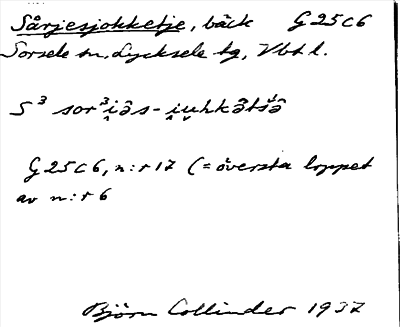 Sårjesjokketje, bäck G 25 c 6
Sorsele sn, Lycksele lg, Vbt l.
S³ sor³i̭ə̂s-i̯u̬hkə̄tš́ə̂
G 25 c 6, n:r 17 (= översta loppet
av n:r 6
Björn Collinder 1937